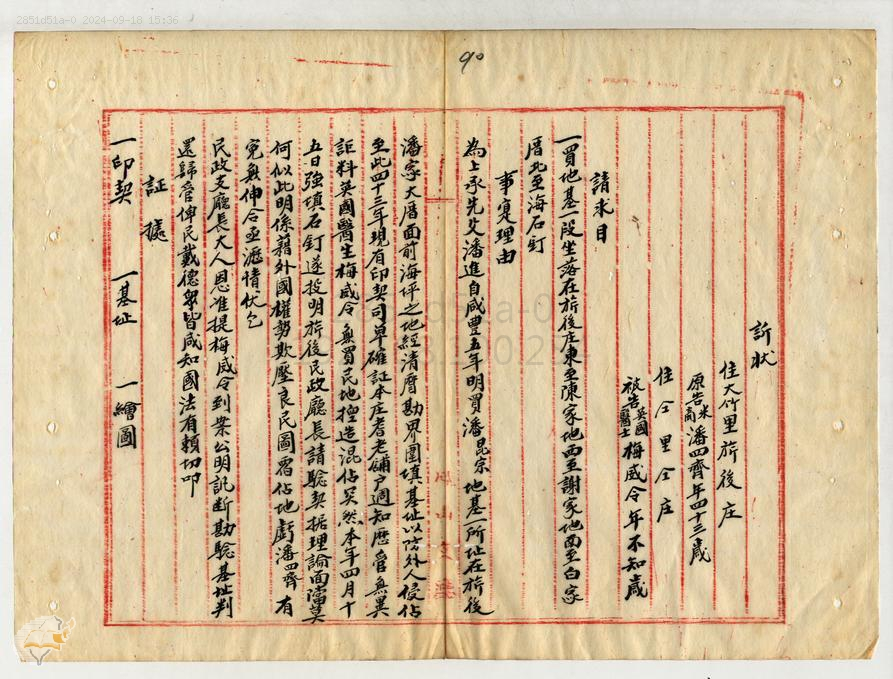 2851d51a-0 2024-09-18 15:36
90
訴狀
住大竹里旂後庄
原告米商潘四齊年四十三歲
住仝里仝庄
被告英國醫士梅威令年不知歲
請求目
一買地基一段坐落在旂後庄東至陳家地西至謝家地南至白家
厝北至海石釘
事寔理由
為上承先父潘進自咸豐五年明買潘昆宗地基一所址在旂後
潘家大厝面前海坪之地經清曆勘界圍填基址以防外人侵佔
至此四十三年現有印契司單確証本庄耆老舖户週知歷管無異
詎料英國醫生梅威令無買民地捏造混佔突然本年四月十
五日強填石釘遂投明旂後民政廳長請驗契据理論面諭莫
何似此明係藉外國權勢欺壓良民圖霸佔地虧潘四齊有
冤無伸令亟瀝情伏乞
民政支廳長大人恩准提梅威令到案公明訊断勘驗基址判
還歸管俾民戴德罙皆咸知國法有賴切叩
証據
一印契 一基址 一繪圖